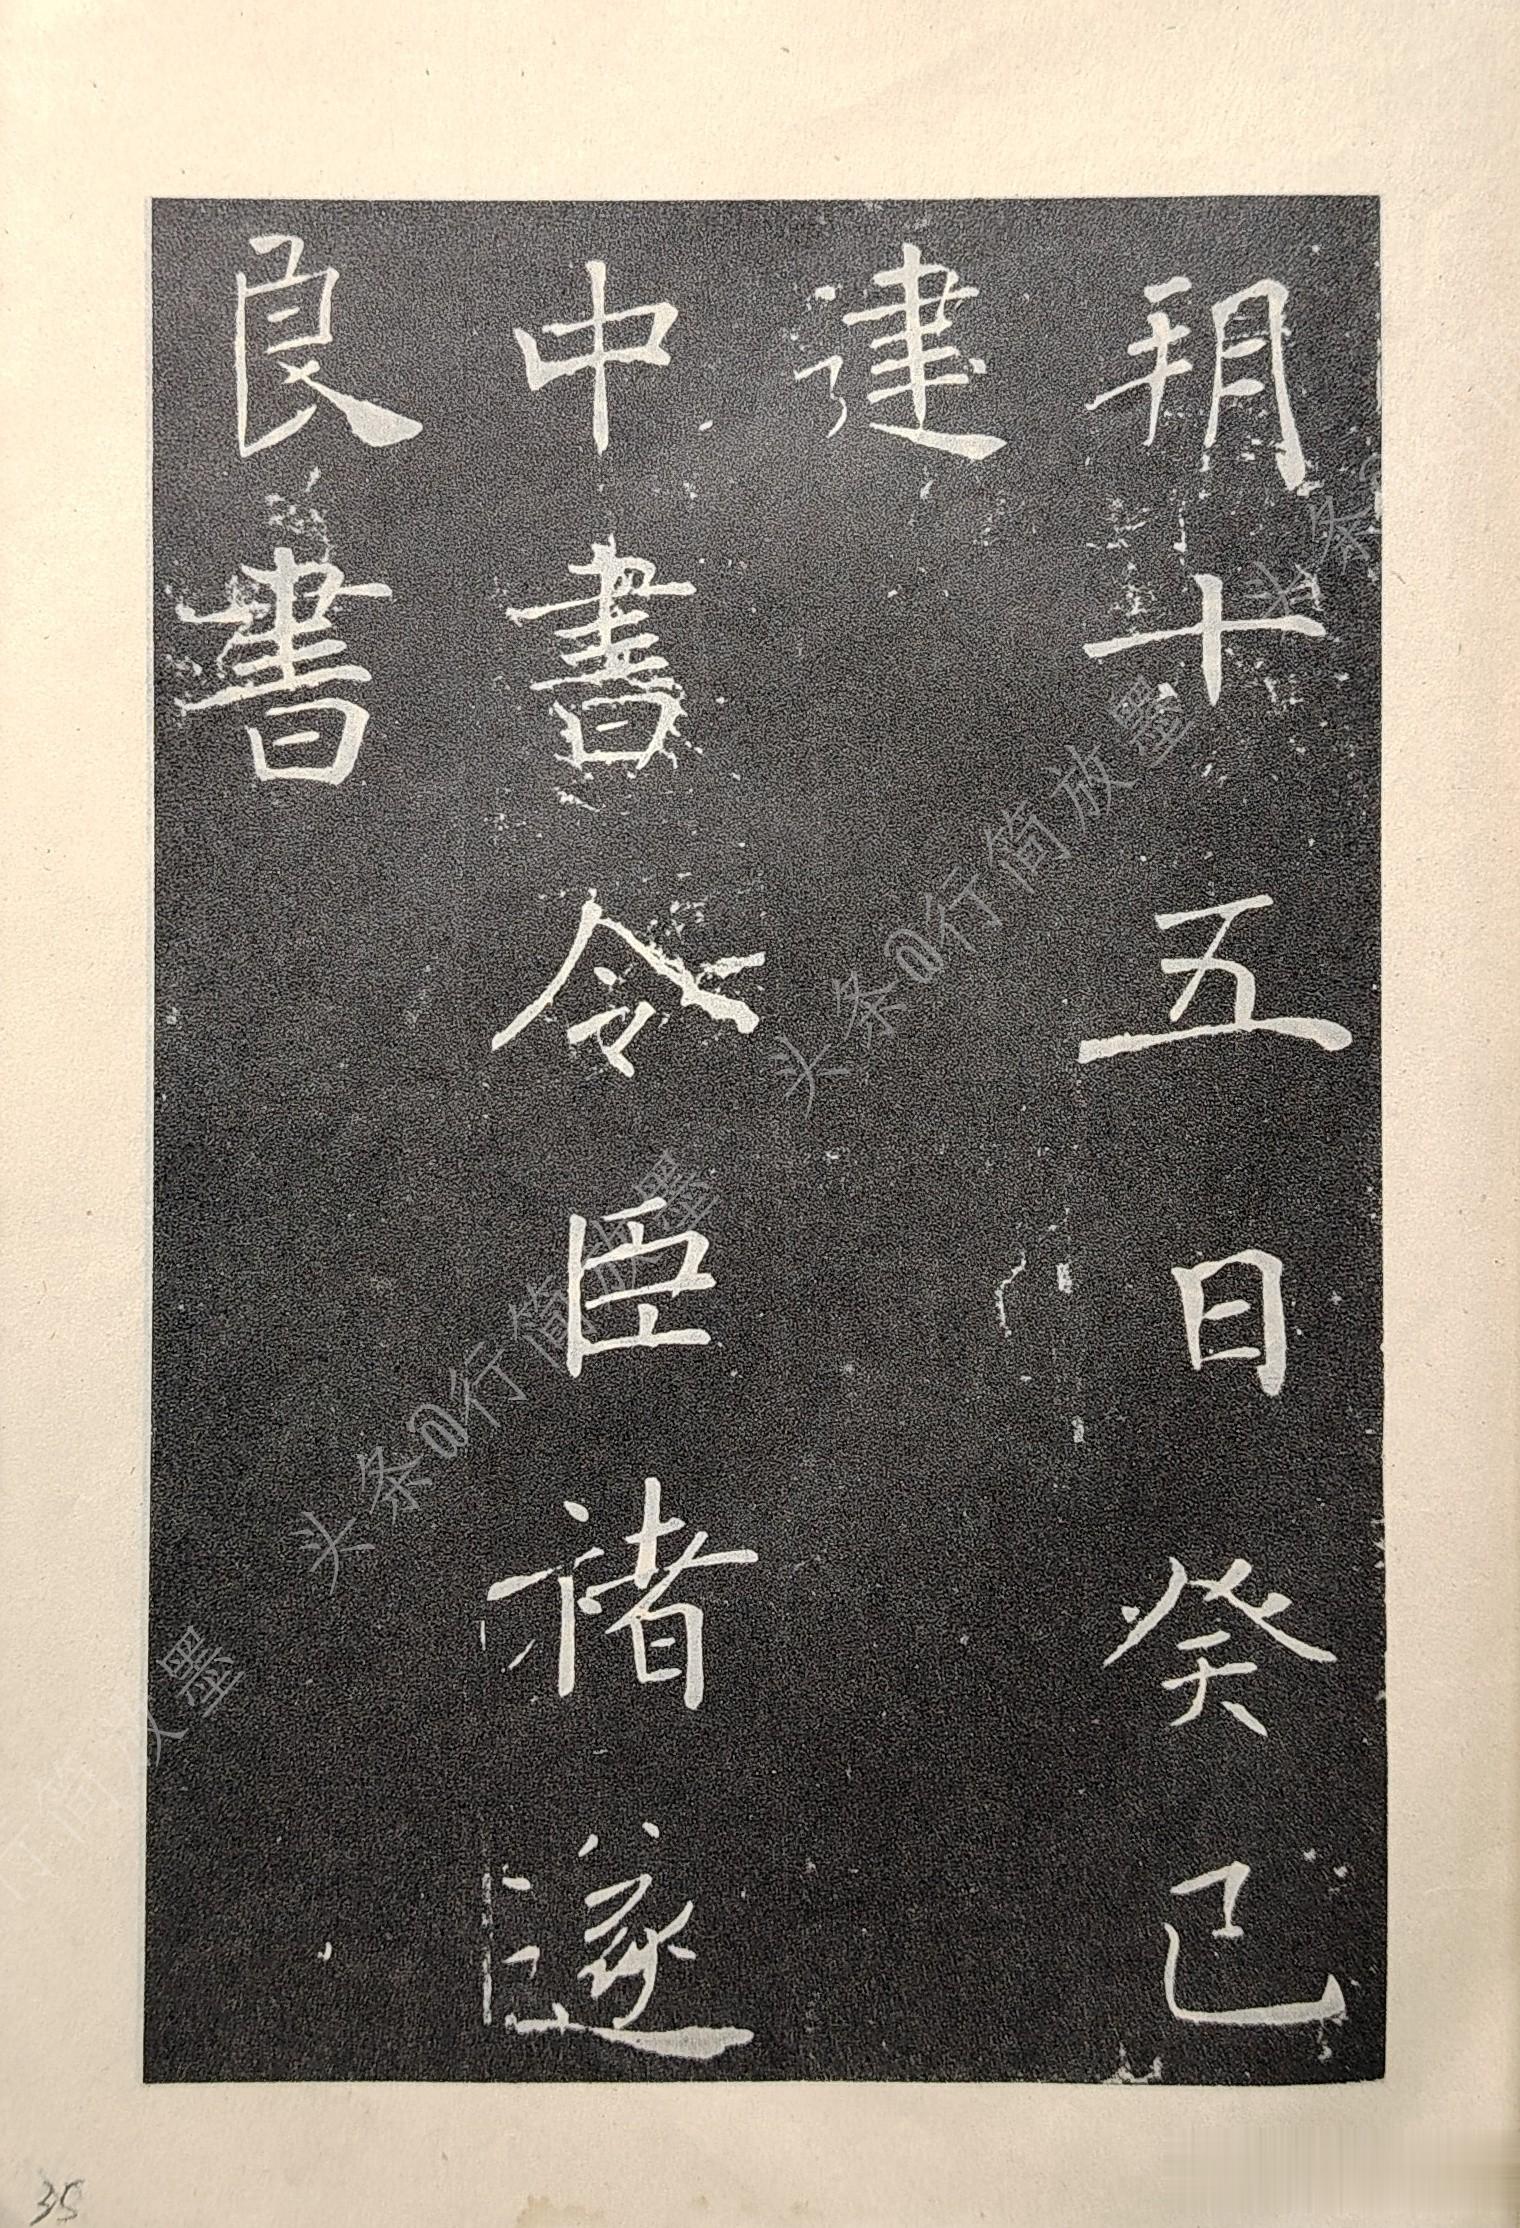 朔十五日癸已
建
中書令臣褚遂
良書
头条@行简放墨
头条@行简放墨
行简放墨
头条
35